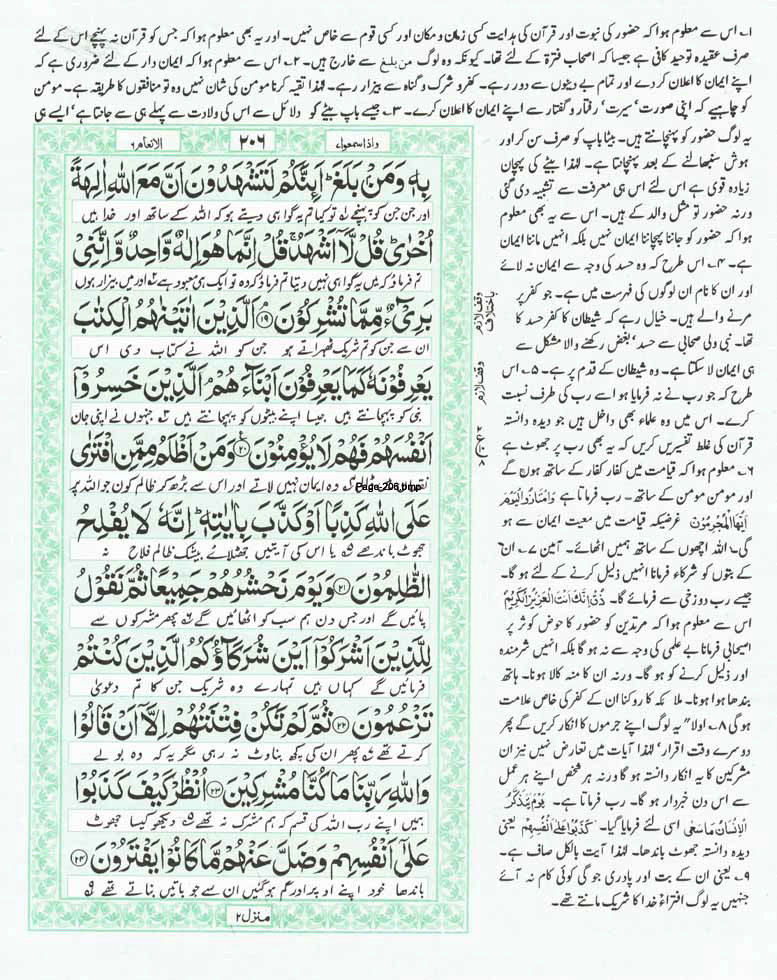 ۱۔ اس سے معلوم ہوا کہ حضور کی نبوت اور قرآن کی ہدایت کسی زمان و مکان اور کسی قوم سے خاص نہیں۔ اور یہ بھی معلوم ہوا کہ جس کو قرآن نہ پہنچے اس کے لئے
صرف عقیدہ توحید کافی ہے جیسا کہ اصحاب فترۃ کے لئے تھا۔ کیونکہ وہ لوگ من بلغ سے خارج ہیں۔ ۲۔ اس سے معلوم ہوا کہ ایمان دار کے لئے ضروری ہے کہ
اپنے ایمان کا اعلان کر دے اور تمام بے دینوں سے دور رہے۔ کفر و شرک و گناہ سے بیزار رہے۔ لہذا تقیہ کرنا مومن کی شان نہیں وہ تو منافقوں کا طریقہ ہے۔ مومن
کو چاہیے کہ اپنی صورت، سیرت، رفتار و گفتار سے اپنے ایمان کا اعلان کرے۔ ۳۔ جیسے باپ بیٹے کو دلائل سے اس کی ولادت سے پہلے ہی سے جانتا ہے، ایسے ہی
یہ لوگ حضور کو پہچانتے ہیں۔ بیٹا باپ کو صرف سن کر اور
ہوش سنبھالنے کے بعد پہچانتا ہے۔ لہذا بیٹے کی پہچان
زیادہ قوی ہے اس لئے اس ہی معرفت سے تشبیہ دی گئی
ورنہ حضور تو مثل والد کے ہیں۔ اس سے یہ بھی معلوم
ہوا کہ حضور کو جاننا پہچاننا ایمان نہیں بلکہ انہیں ماننا ایمان
ہے۔ ۴۔ اس طرح کہ وہ حسد کی وجہ سے ایمان نہ لائے
اور ان کا نام ان لوگوں کی فہرست میں ہے۔ جو کفر پر
مرنے والے ہیں۔ خیال رہے کہ شیطان کا کفر حسد کا
تھا۔ نبی ولی صحابی سے حسد، بغض رکھنے والا مشکل سے
ہی ایمان لا سکتا ہے۔ وہ شیطان کے قدم پر ہے۔ ۵۔ اس
طرح کہ جو رب نے نہ فرمایا ہو اسے رب کی طرف نسبت
کرے۔ اس میں وہ علماء بھی داخل ہیں جو دیدہ دانستہ
قرآن کی غلط تفسیریں کریں کہ یہ بھی رب پر جھوٹ ہے
۶۔ معلوم ہوا کہ قیامت میں کفار کفار کے ساتھ ہوں گے
اور مومن مومن کے ساتھ۔ رب فرماتا ہے وَامْتَازُوا الْيَوْمَ
اَيُّهَا الْمُجْرِمُوْنَ غرضیکہ قیامت میں معیت ایمان سے ہو
گی۔ اللہ اچھوں کے ساتھ ہمیں اٹھائے۔ آمین ۷۔ ان
کے بتوں کو شرکاء فرمانا انہیں ذلیل کرنے کے لئے ہو گا۔
جیسے رب دوزخی سے فرمائے گا۔ ذُقْ اِنَّكَ اَنْتَ الْعَزِيْزُ الْكَرِيْمُ
اس سے معلوم ہوا کہ مرتدین کو حضور کا حوض کوثر پر
اصیحابی فرمانا بے علمی کی وجہ سے نہ ہو گا بلکہ انہیں شرمندہ
اور ذلیل کرنے کو ہو گا۔ ورنہ ان کا منہ کالا ہونا۔ ہاتھ
بندھا ہوا ہونا۔ ملائکہ کا روکنا ان کے کفر کی خاص علامت
ہو گی ۸۔ اولاً یہ لوگ اپنے جرموں کا انکار کریں گے پھر
دوسرے وقت اقرار، لہذا آیات میں تعارض نہیں نیز ان
مشرکین کا یہ انکار دانستہ ہو گا ورنہ ہر شخص اپنے ہر عمل
سے اس دن خبردار ہو گا۔ رب فرماتا ہے۔ يَوْمَ يَتَذَكَّرُ
الْاِنْسَانُ مَا سَعٰى اسی لئے فرمایا گیا۔ كَذَبُوْا عَلٰٓى اَنْفُسِهِمْ یعنی
دیدہ دانستہ جھوٹ باندھا۔ لہذا آیت بالکل صاف ہے۔
۹۔ یعنی ان کے بت اور پادری جوگی کوئی کام نہ آئے
جنہیں یہ لوگ افتراءً خدا کا شریک مانتے تھے۔
واذا سمعوا ۷ ۲۰۶ الانعام ۶
بِهٖ وَمَنْۢ بَلَغَ ؕ اَئِنَّكُمْ لَتَشْهَدُوْنَ اَنَّ مَعَ اللّٰهِ اٰلِهَةً
اور جن جن کو پہنچے ۱ تو کیا تم یہ گواہی دیتے ہو کہ اللہ کے ساتھ اور خدا ہیں
اُخْرٰى ؕ قُلْ لَّاۤ اَشْهَدُ ۚ قُلْ اِنَّمَا هُوَ اِلٰهٌ وَّاحِدٌ وَّاِنَّنِيْ
تم فرماؤ کہ میں یہ گواہی نہیں دیتا تم فرماؤ کہ وہ تو ایک ہی معبود ہے اور میں بیزار ہوں
بَرِيْٓءٌ مِّمَّا تُشْرِكُوْنَ ۱۹ اَلَّذِيْنَ اٰتَيْنٰهُمُ الْكِتٰبَ
ان سے جن کو تم شریک ٹھہراتے ہو جن کو اللہ نے کتاب دی اس
يَعْرِفُوْنَهٗ كَمَا يَعْرِفُوْنَ اَبْنَآءَهُمْ ۘ اَلَّذِيْنَ خَسِرُوْۤا
نبی کو پہچانتے ہیں جیسا اپنے بیٹوں کو پہچانتے ہیں ۳ جنہوں نے اپنی جان
اَنْفُسَهُمْ فَهُمْ لَا يُؤْمِنُوْنَ ۲۰ وَمَنْ اَظْلَمُ مِمَّنِ افْتَرٰى
وہ ایمان نہیں لاتے اور اس سے بڑھ کر ظالم کون جو اللہ پر
Page-206.bmp
عَلَى اللّٰهِ كَذِبًا اَوْ كَذَّبَ بِاٰيٰتِهٖ ؕ اِنَّهٗ لَا يُفْلِحُ
جھوٹ باندھے ۵ یا اس کی آیتیں جھٹلائے بیشک ظالم فلاح نہ
الظّٰلِمُوْنَ ۲۱ وَيَوْمَ نَحْشُرُهُمْ جَمِيْعًا ثُمَّ نَقُوْلُ
پائیں گے اور جس دن ہم سب کو اٹھائیں گے ۶ پھر مشرکوں سے
لِلَّذِيْنَ اَشْرَكُوْۤا اَيْنَ شُرَكَآؤُكُمُ الَّذِيْنَ كُنْتُمْ
فرمائیں گے کہاں ہیں تمہارے وہ شریک جن کا تم دعویٰ
تَزْعُمُوْنَ ۲۲ ثُمَّ لَمْ تَكُنْ فِتْنَتُهُمْ اِلَّاۤ اَنْ قَالُوْا
کرتے تھے ۷ پھر ان کی کچھ بناوٹ نہ رہی مگر یہ کہ وہ بولے
وَاللّٰهِ رَبِّنَا مَا كُنَّا مُشْرِكِيْنَ ۲۳ اُنْظُرْ كَيْفَ كَذَبُوْا
ہمیں اپنے رب اللہ کی قسم کہ ہم مشرک نہ تھے ۸ دیکھو کیسا جھوٹ
عَلٰٓى اَنْفُسِهِمْ وَضَلَّ عَنْهُمْ مَّا كَانُوْا يَفْتَرُوْنَ ۲۴
باندھا خود اپنے اوپر اور گم ہو گئیں ان سے جو باتیں بناتے تھے ۹
منزل ۲
وقف لازم
باختلاف
وقف لازم